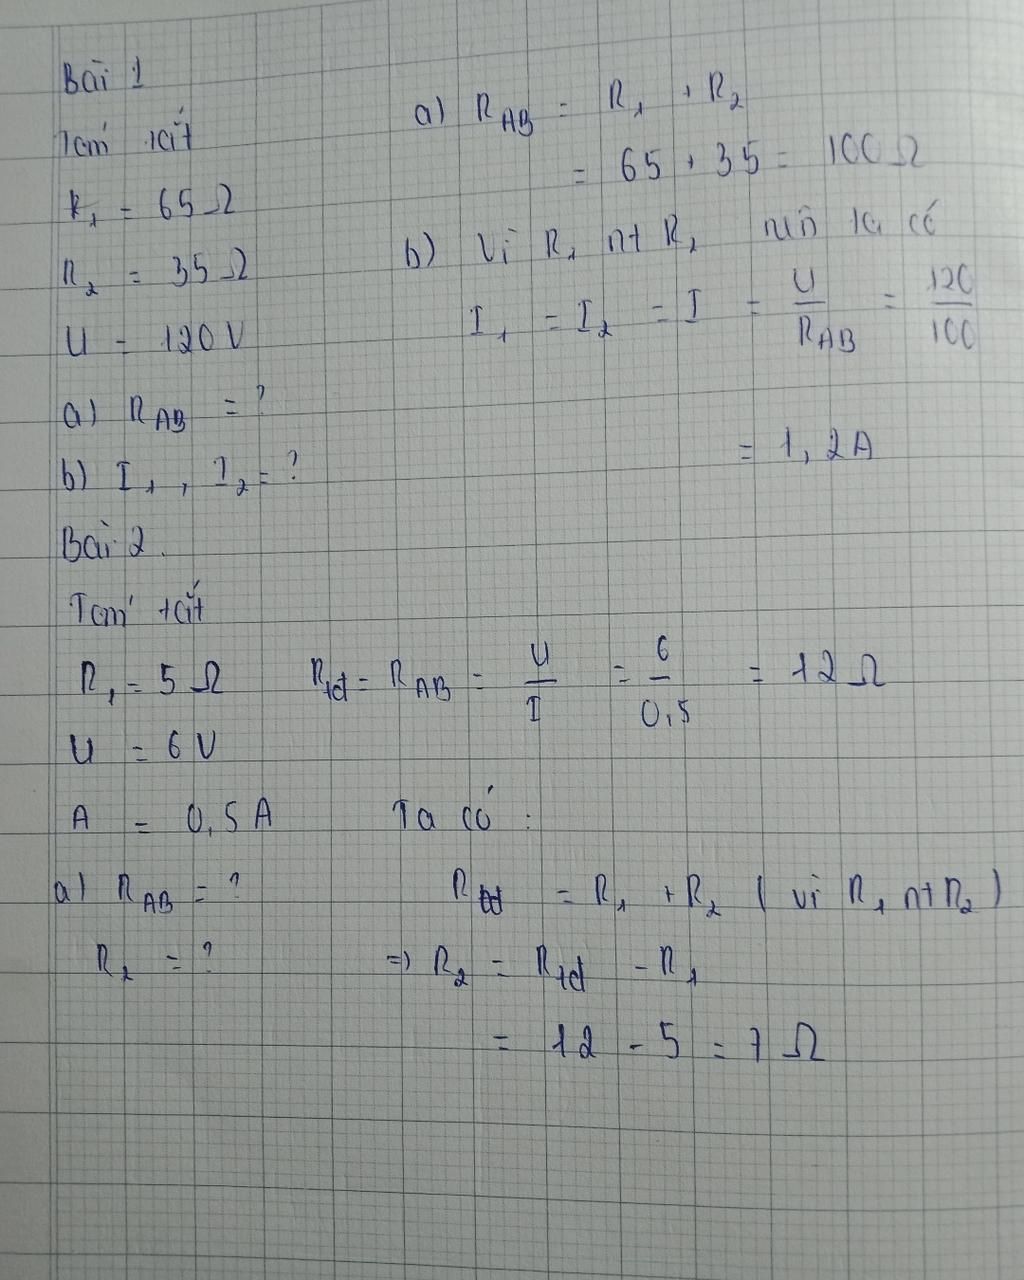 Bài 1
Tóm tắt
R₁ = 65 Ω
R₂ = 35 Ω
U = 120 V
a) R_AB = ?
b) I₁, I₂ = ?
a) R_AB = R₁ + R₂
= 65 + 35 = 100 Ω
b) Vì R₁ nt R₂ nên ta có
I₁ = I₂ = I = U/R_AB = 120/100
= 1,2 A
Bài 2.
Tóm tắt
R₁ = 5 Ω
U = 6 V
A = 0,5 A
a) R_AB = ?
R₂ = ?
R_tđ = R_AB = U/I = 6/0,5 = 12 Ω
Ta có :
R_tđ = R₁ + R₂ ( vì R₁ nt R₂ )
=> R₂ = R_tđ - R₁
= 12 - 5 = 7 Ω